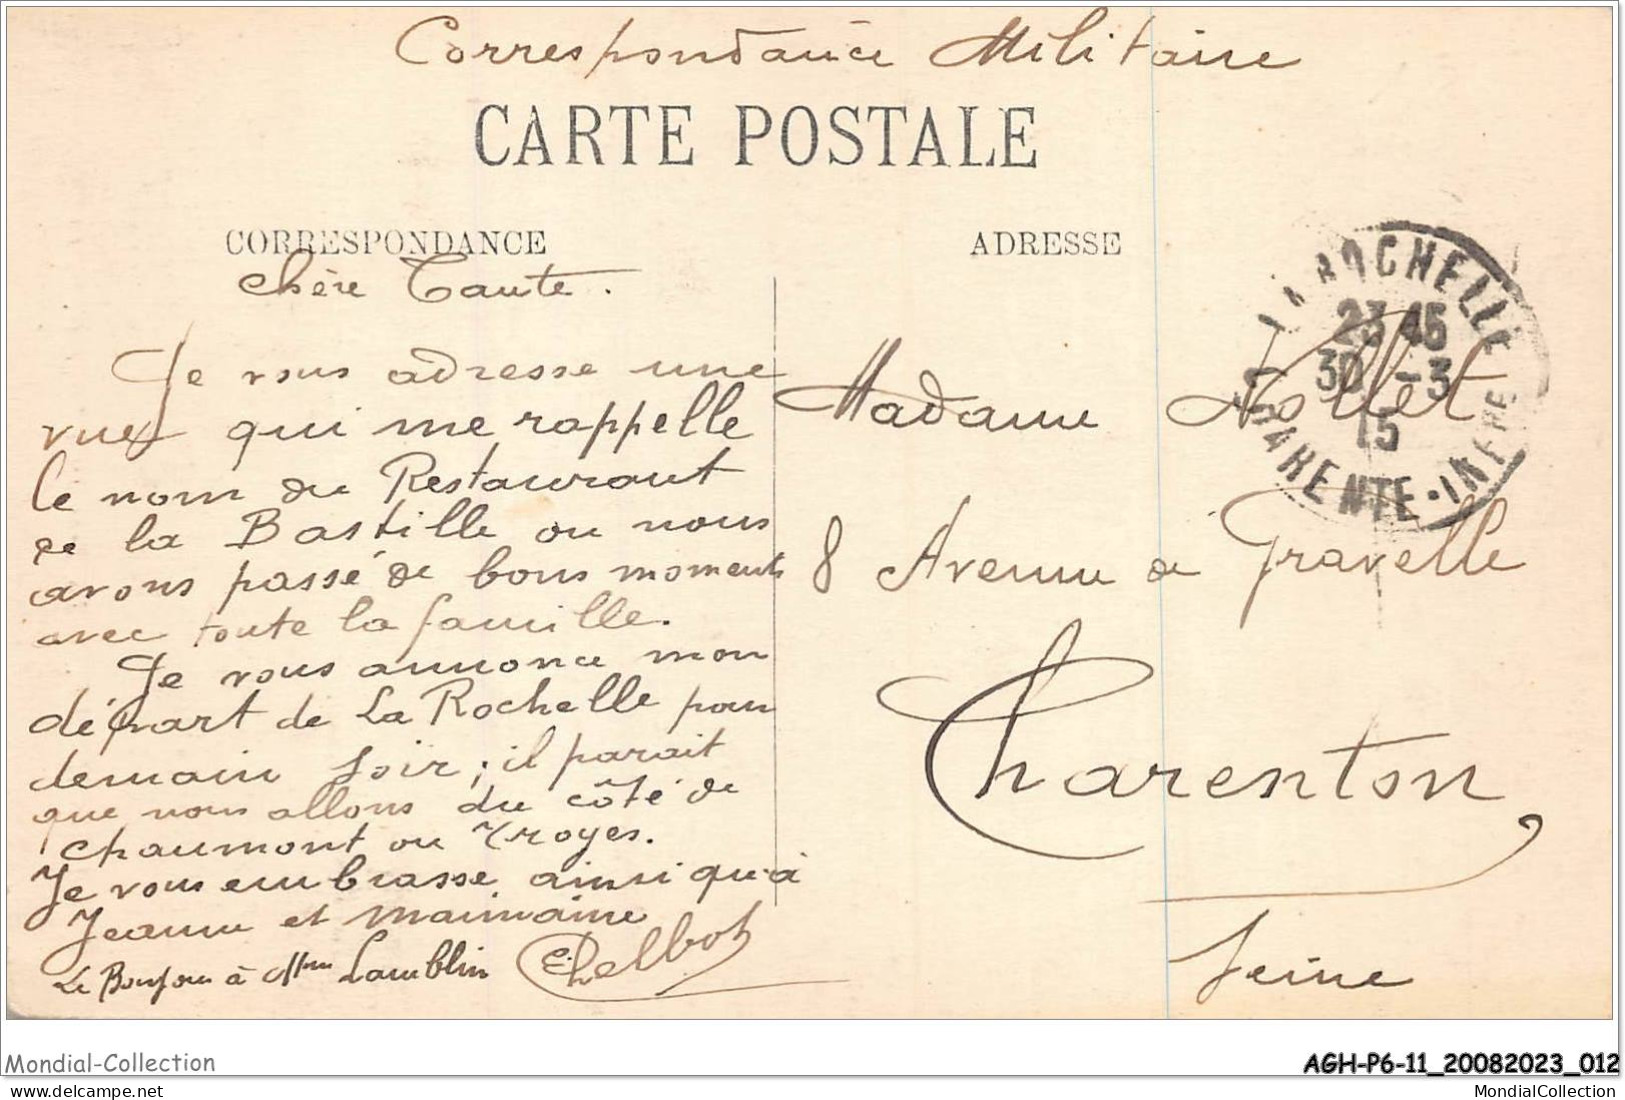 Correspondance Militaire
CARTE POSTALE
CORRESPONDANCE
ADRESSE
Chère Tante.
Je vous adresse une
vue qui me rappelle
le nom du Restaurant
de la Bastille ou nous
avons passé de bons moments
avec toute la famille.
Je vous annonce mon
départ de La Rochelle pour
demain soir; il parait
que nous allons du côté de
Chaumont ou Troyes.
Je vous embrasse ainsi qu'à
Jeanne et Mainaine
Le Bonjour à Mme Lamblin
Madame Nollet
8 Avenue de Gravelle
Charenton
Seine
LA ROCHELLE
23 45
30 -3
15
CHARENTE-INFRE
Mondial-Collection
AGH-P6-11_20082023_012
www.delcampe.net
MondialCollection